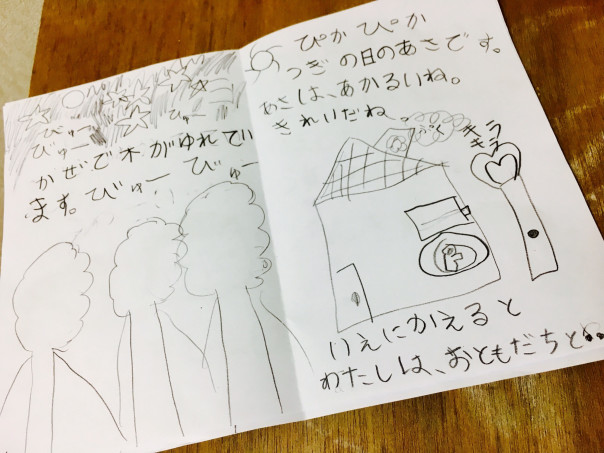 びゅー
びゅー
びゅー
びゅー
かぜで木がゆれてい
ます。びゅー びゅー
ぴかぴか
つぎの日のあさです。
あさは、あかるいね。
きれいだね。
キラ
キラ
いえにかえると
わたしは、おともだちと